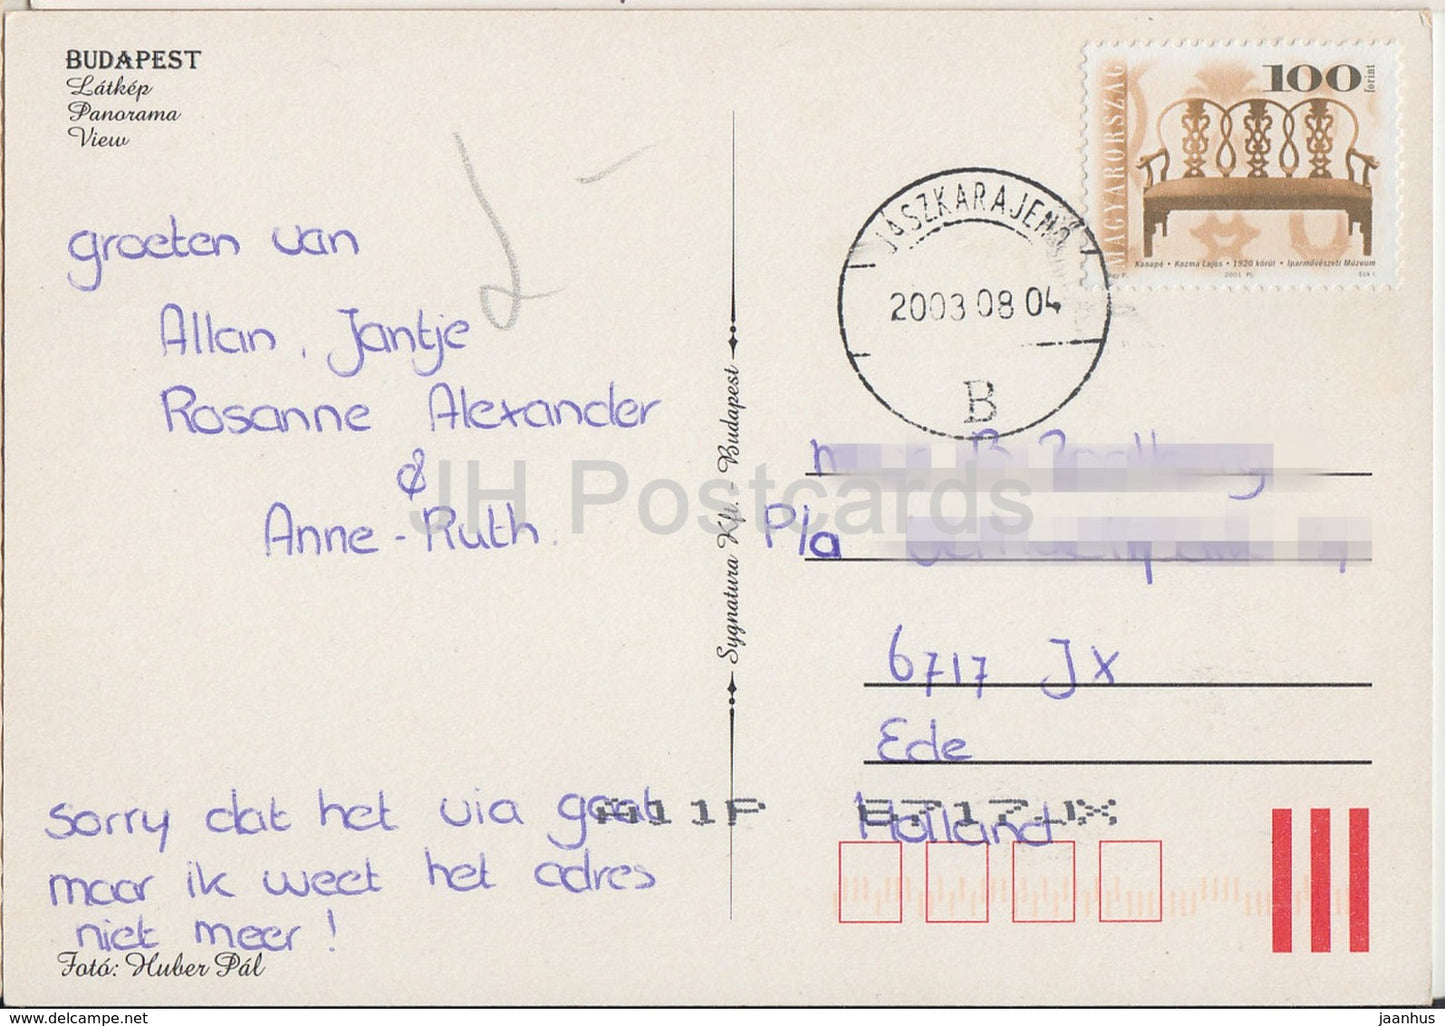 BUDAPEST
Látkép
Panorama
View
groeten van
Allan, Jantje
Rosanne Alexander
&
Anne-Ruth.
sorry dat het via gaat
maar ik weet het adres
niet meer!
Fotó: Huber Pál
Sygnatura Kft. - Budapest
MAGYARORSZÁG
100
forint
Kanapé • Kozma Lajos • 1920 körül • Iparművészeti Múzeum
2001
JÁSZKARAJENŐ
2003 08 04
B
P/a
6717 JX
Ede
Holland
A11P 6717JX
JH Postcards
www.delcampe.net
jaanhus